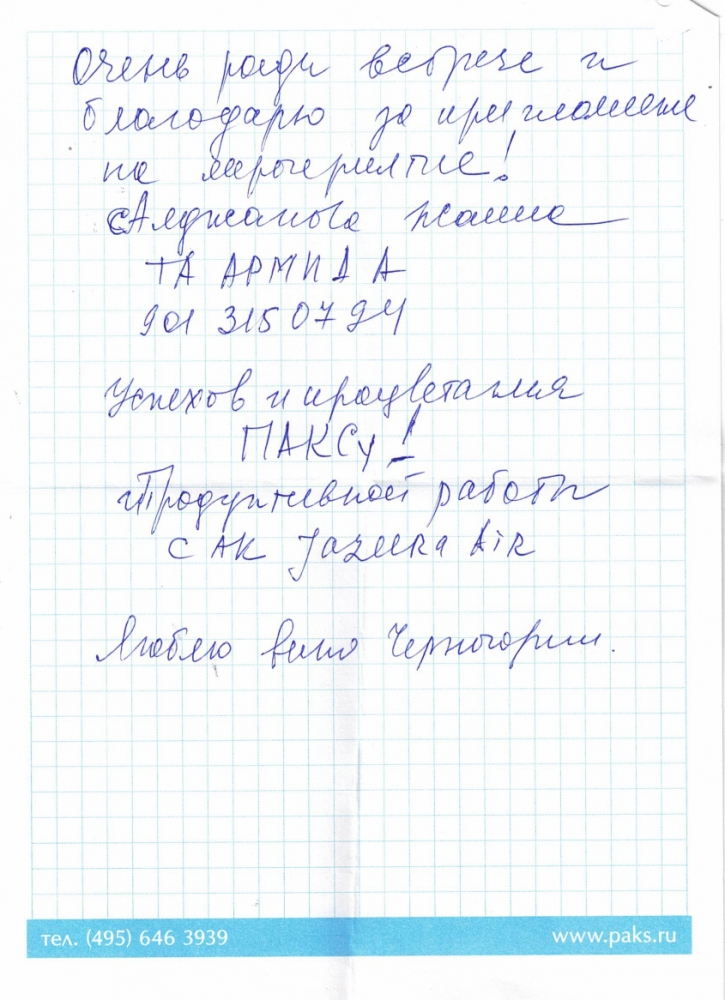 Очень рады встрече и
благодарю за приглашение
на мероприятие!
Алджанова Жанна
ТА АРМИДА
901 315 07 94
Успехов и процветания
ПАКСу!
Продуктивной работы
с АК Jazeera Air
Люблю вино Черногории.
тел. (495) 646 3939
www.paks.ru